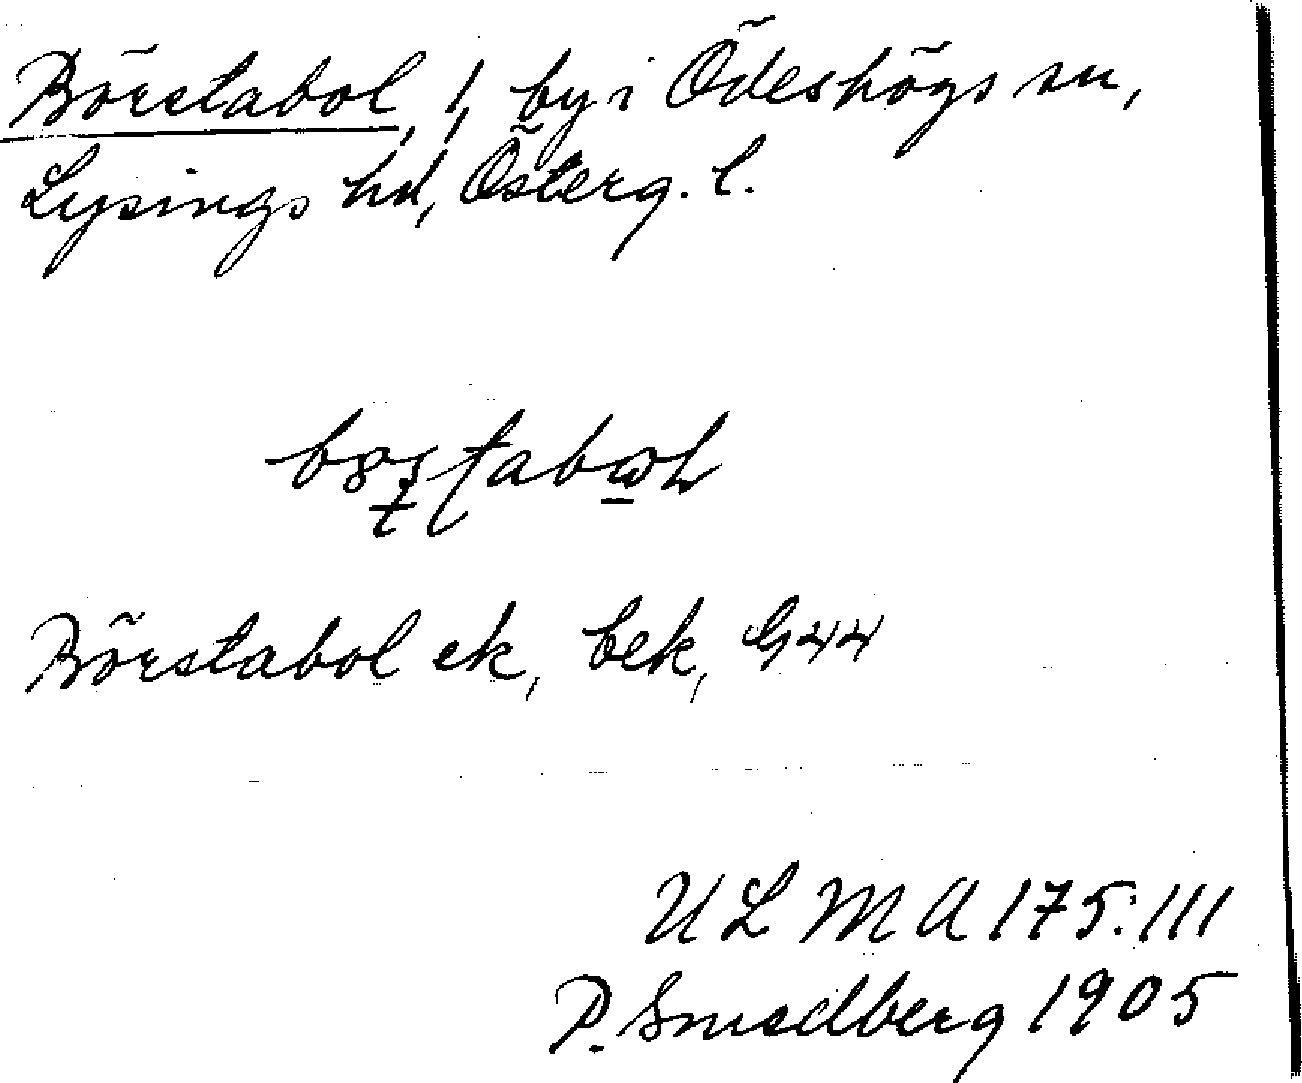 Börstabol, 1, by i Ödeshögs sn,
Lysings hd, Österg. l.
Börstabol ek, bek, G44
ULMA 175:111
P. Smedberg 1905